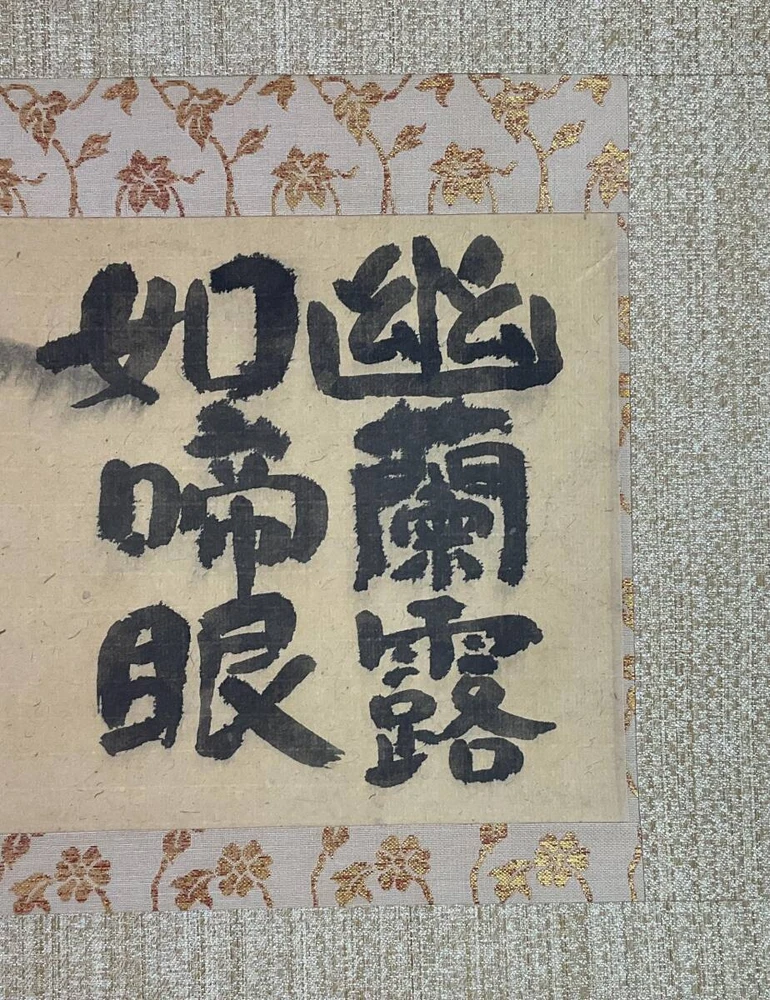 幽蘭露
如啼眼